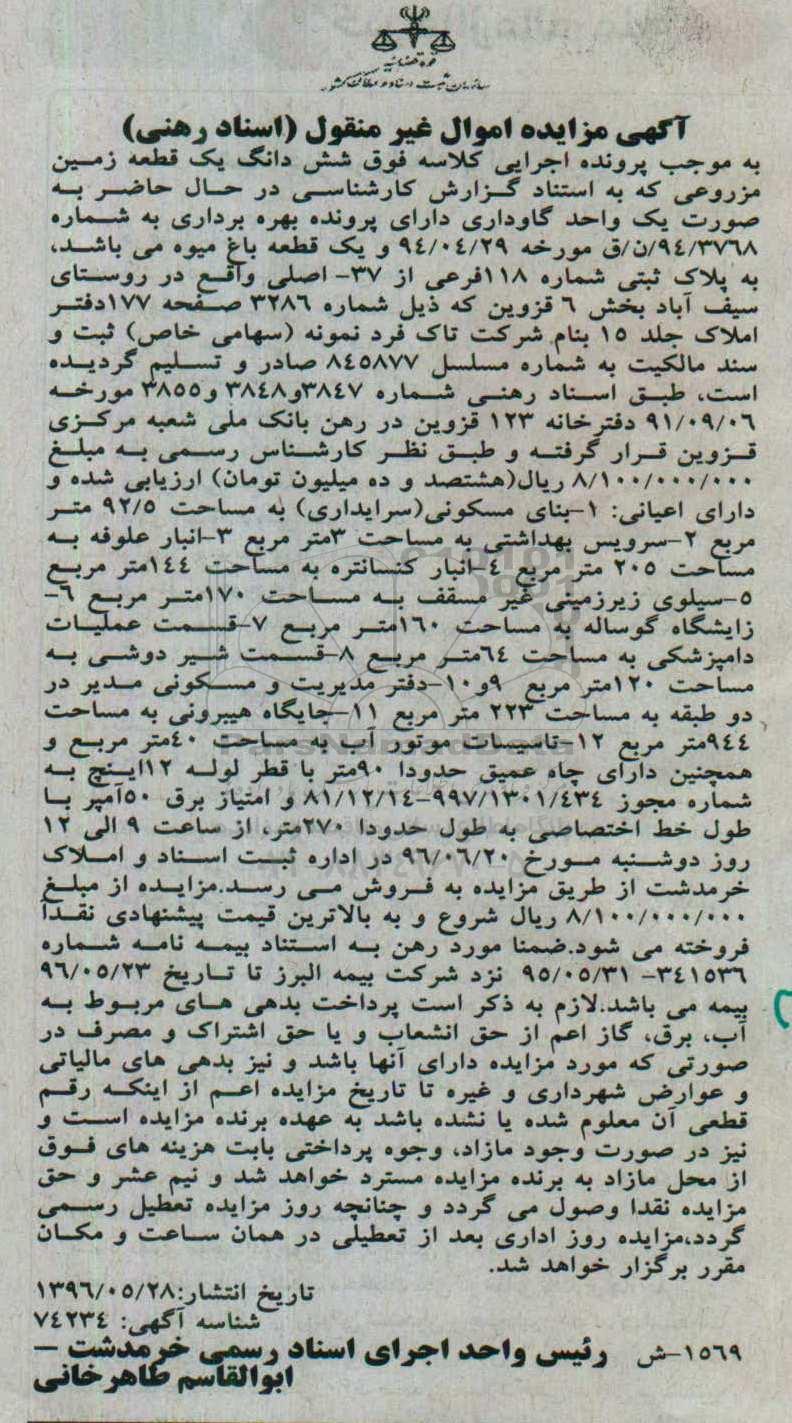 قوه قضائیه
سازمان ثبت اسناد و املاک کشور
آگهی مزایده اموال غیر منقول (اسناد رهنی)
به موجب پرونده اجرایی کلاسه فوق شش دانگ یک قطعه زمین
مزروعی که به استناد گزارش کارشناسی در حال حاضر به
صورت یک واحد گاوداری دارای پرونده بهره برداری به شماره
۹٤/۳۷٦۸/ن/ق مورخه ۹٤/۰٤/۲۹ و یک قطعه باغ میوه می باشد،
به پلاک ثبتی شماره ۱۱۸فرعی از ۳۷- اصلی واقع در روستای
سیف آباد بخش ٦ قزوین که ذیل شماره ۳۲۸٦ صفحه ۱۷۷دفتر
املاک جلد ۱٥ بنام شرکت تاک فرد نمونه (سهامی خاص) ثبت و
سند مالکیت به شماره مسلسل ۸٤٥۸۷۷ صادر و تسلیم گردیده
است، طبق اسناد رهنی شماره ۳۸٤۷و۳۸٤۸ و۳۸٥٥ مورخه
۹۱/۰۹/۰٦ دفترخانه ۱۲۳ قزوین در رهن بانک ملی شعبه مرکزی
قزوین قرار گرفته و طبق نظر کارشناس رسمی به مبلغ
۸/۱۰۰/۰۰۰/۰۰۰ ریال(هشتصد و ده میلیون تومان) ارزیابی شده و
دارای اعیانی: ۱-بنای مسکونی(سرایداری) به مساحت ۹۲/٥ متر
مربع ۲-سرویس بهداشتی به مساحت ۳متر مربع ۳-انبار علوفه به
مساحت ۲۰٥ متر مربع ٤-انبار کنسانتره به مساحت ۱٤٤متر مربع
٥-سیلوی زیرزمینی غیر مسقف به مساحت ۱۷۰متر مربع ٦-
زایشگاه گوساله به مساحت ۱٦۰متر مربع ۷-قسمت عملیات
دامپزشکی به مساحت ٦٤متر مربع ۸-قسمت شیر دوشی به
مساحت ۱۲۰متر مربع ۹و۱۰-دفتر مدیریت و مسکونی مدیر در
دو طبقه به مساحت ۲۲۳ متر مربع ۱۱-جایگاه هیبرونی به مساحت
۹٤٤متر مربع ۱۲-تاسیسات موتور آب به مساحت ٤۰متر مربع و
همچنین دارای چاه عمیق حدودا ۹۰متر با قطر لوله ۱۲اینچ به
شماره مجوز ۹۹۷/۱۳۰۱/٤۳٤-۸۱/۱۲/۱٤ و امتیاز برق ٥۰آمپر با
طول خط اختصاصی به طول حدودا ۲۷۰متر، از ساعت ۹ الی ۱۲
روز دوشنبه مورخ ۹٦/۰٦/۲۰ در اداره ثبت اسناد و املاک
خرمدشت از طریق مزایده به فروش می رسد.مزایده از مبلغ
۸/۱۰۰/۰۰۰/۰۰۰ ریال شروع و به بالاترین قیمت پیشنهادی نقدا
فروخته می شود.ضمنا مورد رهن به استناد بیمه نامه شماره
۳٤۱٥۳٦- ۹٥/۰٥/۳۱ نزد شرکت بیمه البرز تا تاریخ ۹٦/۰٥/۲۳
بیمه می باشد.لازم به ذکر است پرداخت بدهی های مربوط به
آب، برق، گاز اعم از حق انشعاب و یا حق اشتراک و مصرف در
صورتی که مورد مزایده دارای آنها باشد و نیز بدهی های مالیاتی
و عوارض شهرداری و غیره تا تاریخ مزایده اعم از اینکه رقم
قطعی آن معلوم شده یا نشده باشد به عهده برنده مزایده است و
نیز در صورت وجود مازاد، وجوه پرداختی بابت هزینه های فوق
از محل مازاد به برنده مزایده مسترد خواهد شد و نیم عشر و حق
مزایده نقدا وصول می گردد و چنانچه روز مزایده تعطیل رسمی
گردد،مزایده روز اداری بعد از تعطیلی در همان ساعت و مکان
مقرر برگزار خواهد شد.
تاریخ انتشار:۱۳۹٦/۰٥/۲۸
شناسه آگهی: ۷٤۲۳٤
۱٥٦۹-ش رئیس واحد اجرای اسناد رسمی خرمدشت –
ابوالقاسم طاهرخانی